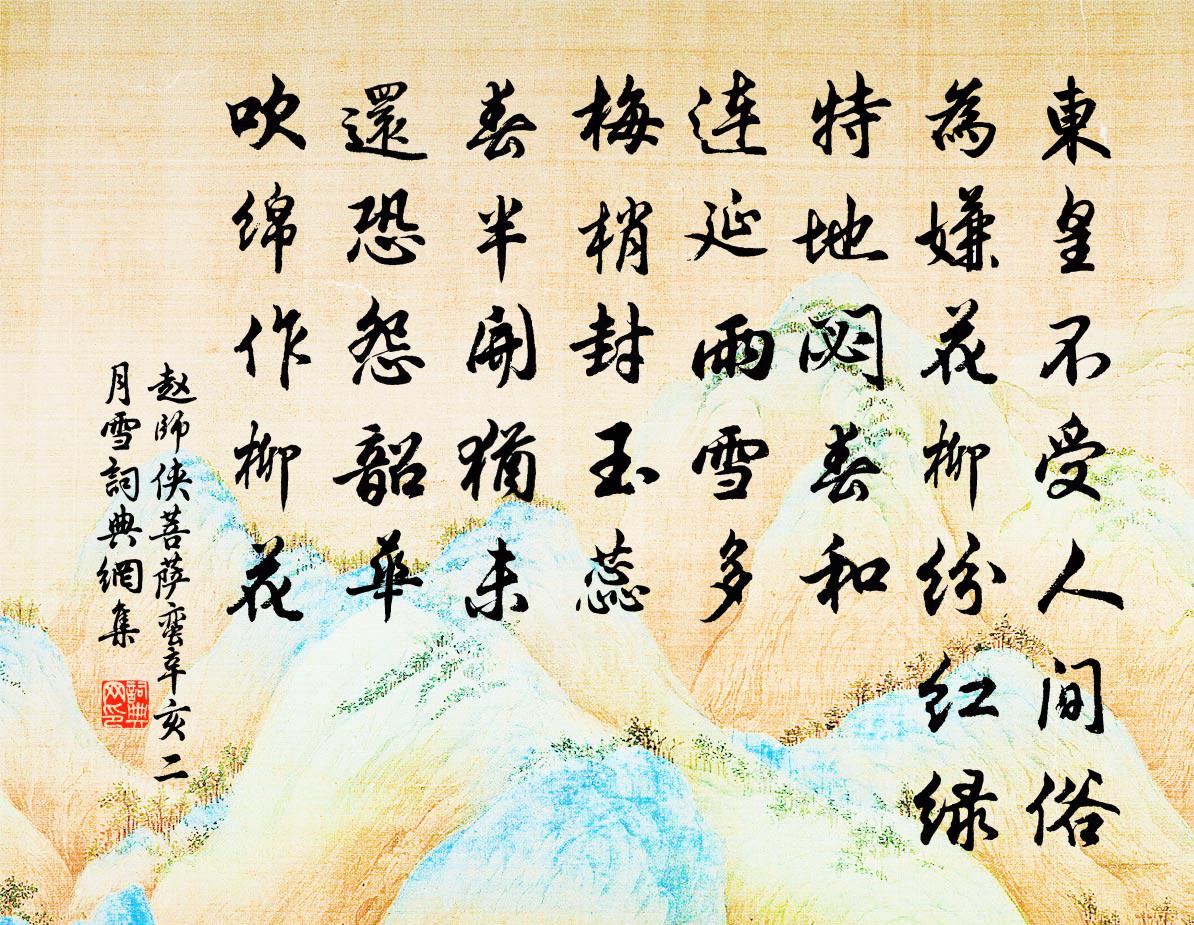 東皇不受人间俗
為嫌花柳纷红绿
特地閟春和
连延雨雪多
梅梢封玉蕊
春半開犹未
還恐怨韶華
吹绵作柳花
赵師侠菩萨蛮辛亥二
月雪詞典網集
詞典
网印